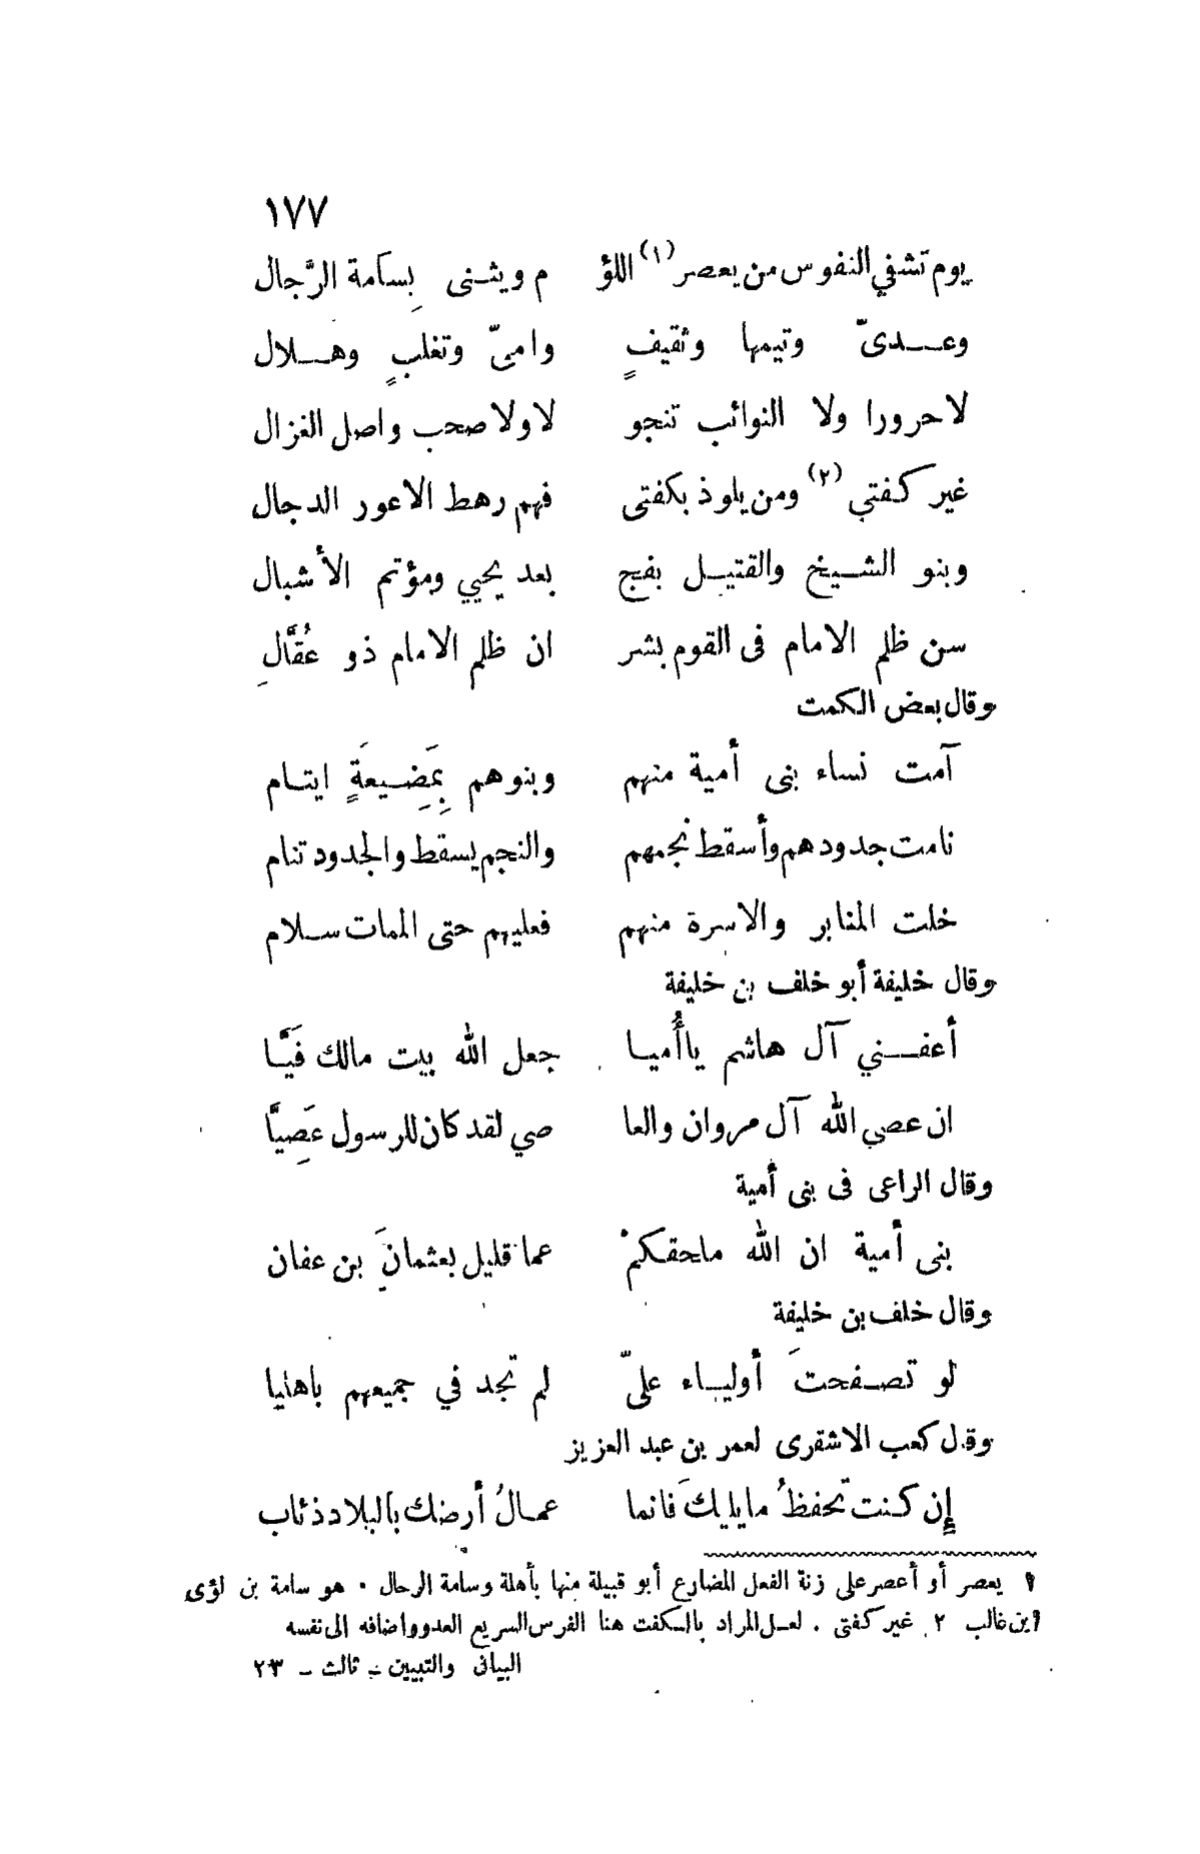 ١٧٧
يوم تشفي النفوس من يعصر (١) اللؤ م ويثنى بِسامة الرَّجال
وعدىّ وتيمها وثقيفٍ وامىّ وتغلبٍ وهلال
لا حرورا ولا النوائب تنجو لا ولا صحب واصل الغزال
غير كفتي (٢) ومن يلوذ بكفتى فهم رهط الاعور الدجال
وبنو الشيخ والقتيل بفج بعد يحيي ومؤتم الأشبال
سن ظلم الامام فى القوم بشر ان ظلم الامام ذو عُقَّالِ
وقال بعض الكمت
آمت نساء بنى أمية منهم وبنوهم بِمَضِيعَةٍ ايتام
نامت جدودهم وأسقط نجمهم والنجم يسقط والجدود تنام
خلت المنابر والاسرة منهم فعليهم حتى الممات سلام
وقال خليفة أبو خلف بن خليفة
أعفني آل هاشم ياأُميا جعل الله بيت مالك فَيَّا
ان عصي الله آل مروان والعا صي لقد كان للرسول عَصِيَّا
وقال الراعى فى بنى أمية
بنى أمية ان الله ملحقكمْ عما قليل بعثمانَ بن عفان
وقال خلف بن خليفة
لو تصفحتَ أولياء علىّ لم تجد في جميعهم باهليا
وقل كعب الاشقرى لعمر بن عبد العزيز
إِن كنت تحفظُ مايليكَ فانما عمالُ أرضك بالبلاد ذئاب
١ يعصر أو أعصر على زنة الفعل المضارع أبو قبيلة منها بأهلة وسامة الرحال . هو سامة بن لؤى
ابن غالب ٢ غير كفتى . لعل المراد بالكفت هنا الفرس السريع العدو واضافه الى نفسه
البيان والتبيين ـ ثالث ـ ٢٣